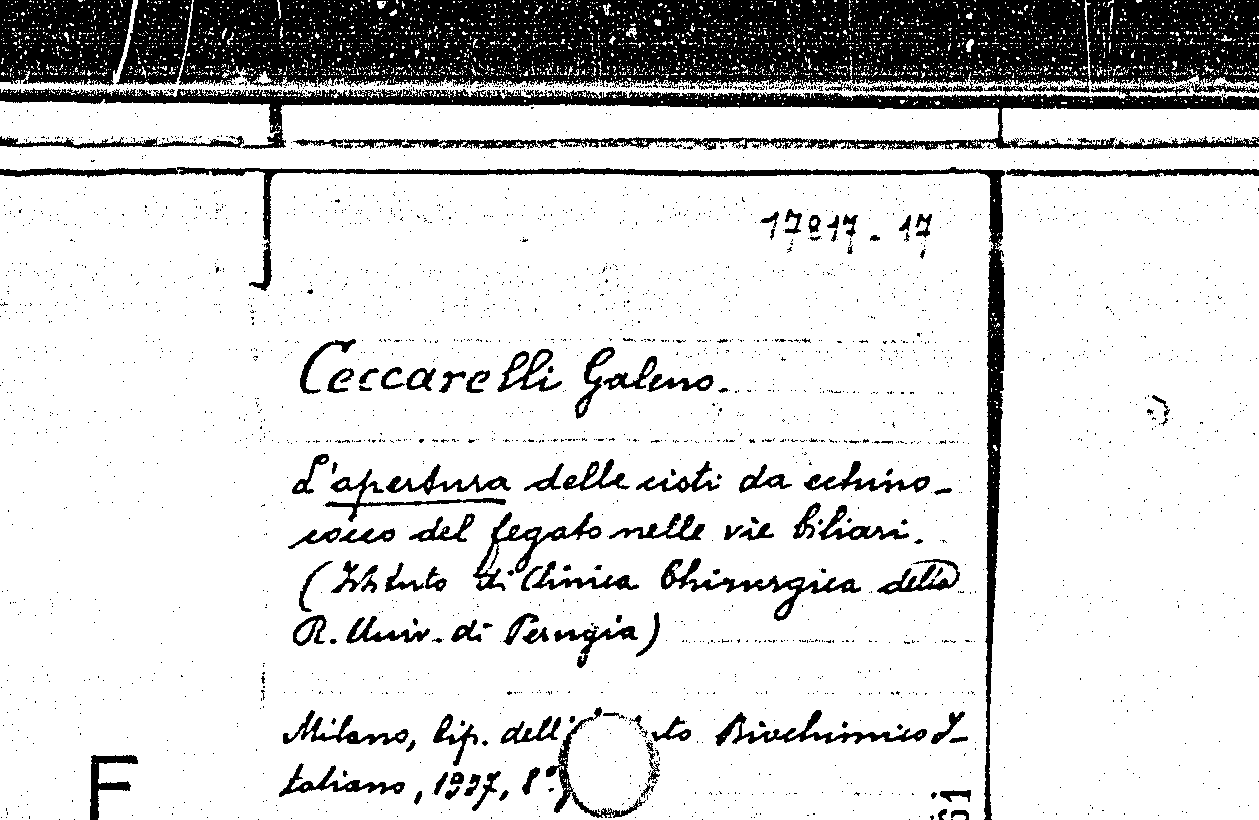 17817 - 17
Ceccarelli Galeno.
L'apertura delle cisti da echino-
cocco del fegato nelle vie biliari.
(Istituto di Clinica Chirurgica della
R. Univ. di Perugia)
Milano, tip. dell' Biochimico I-
taliano, 1937, 8°.
F